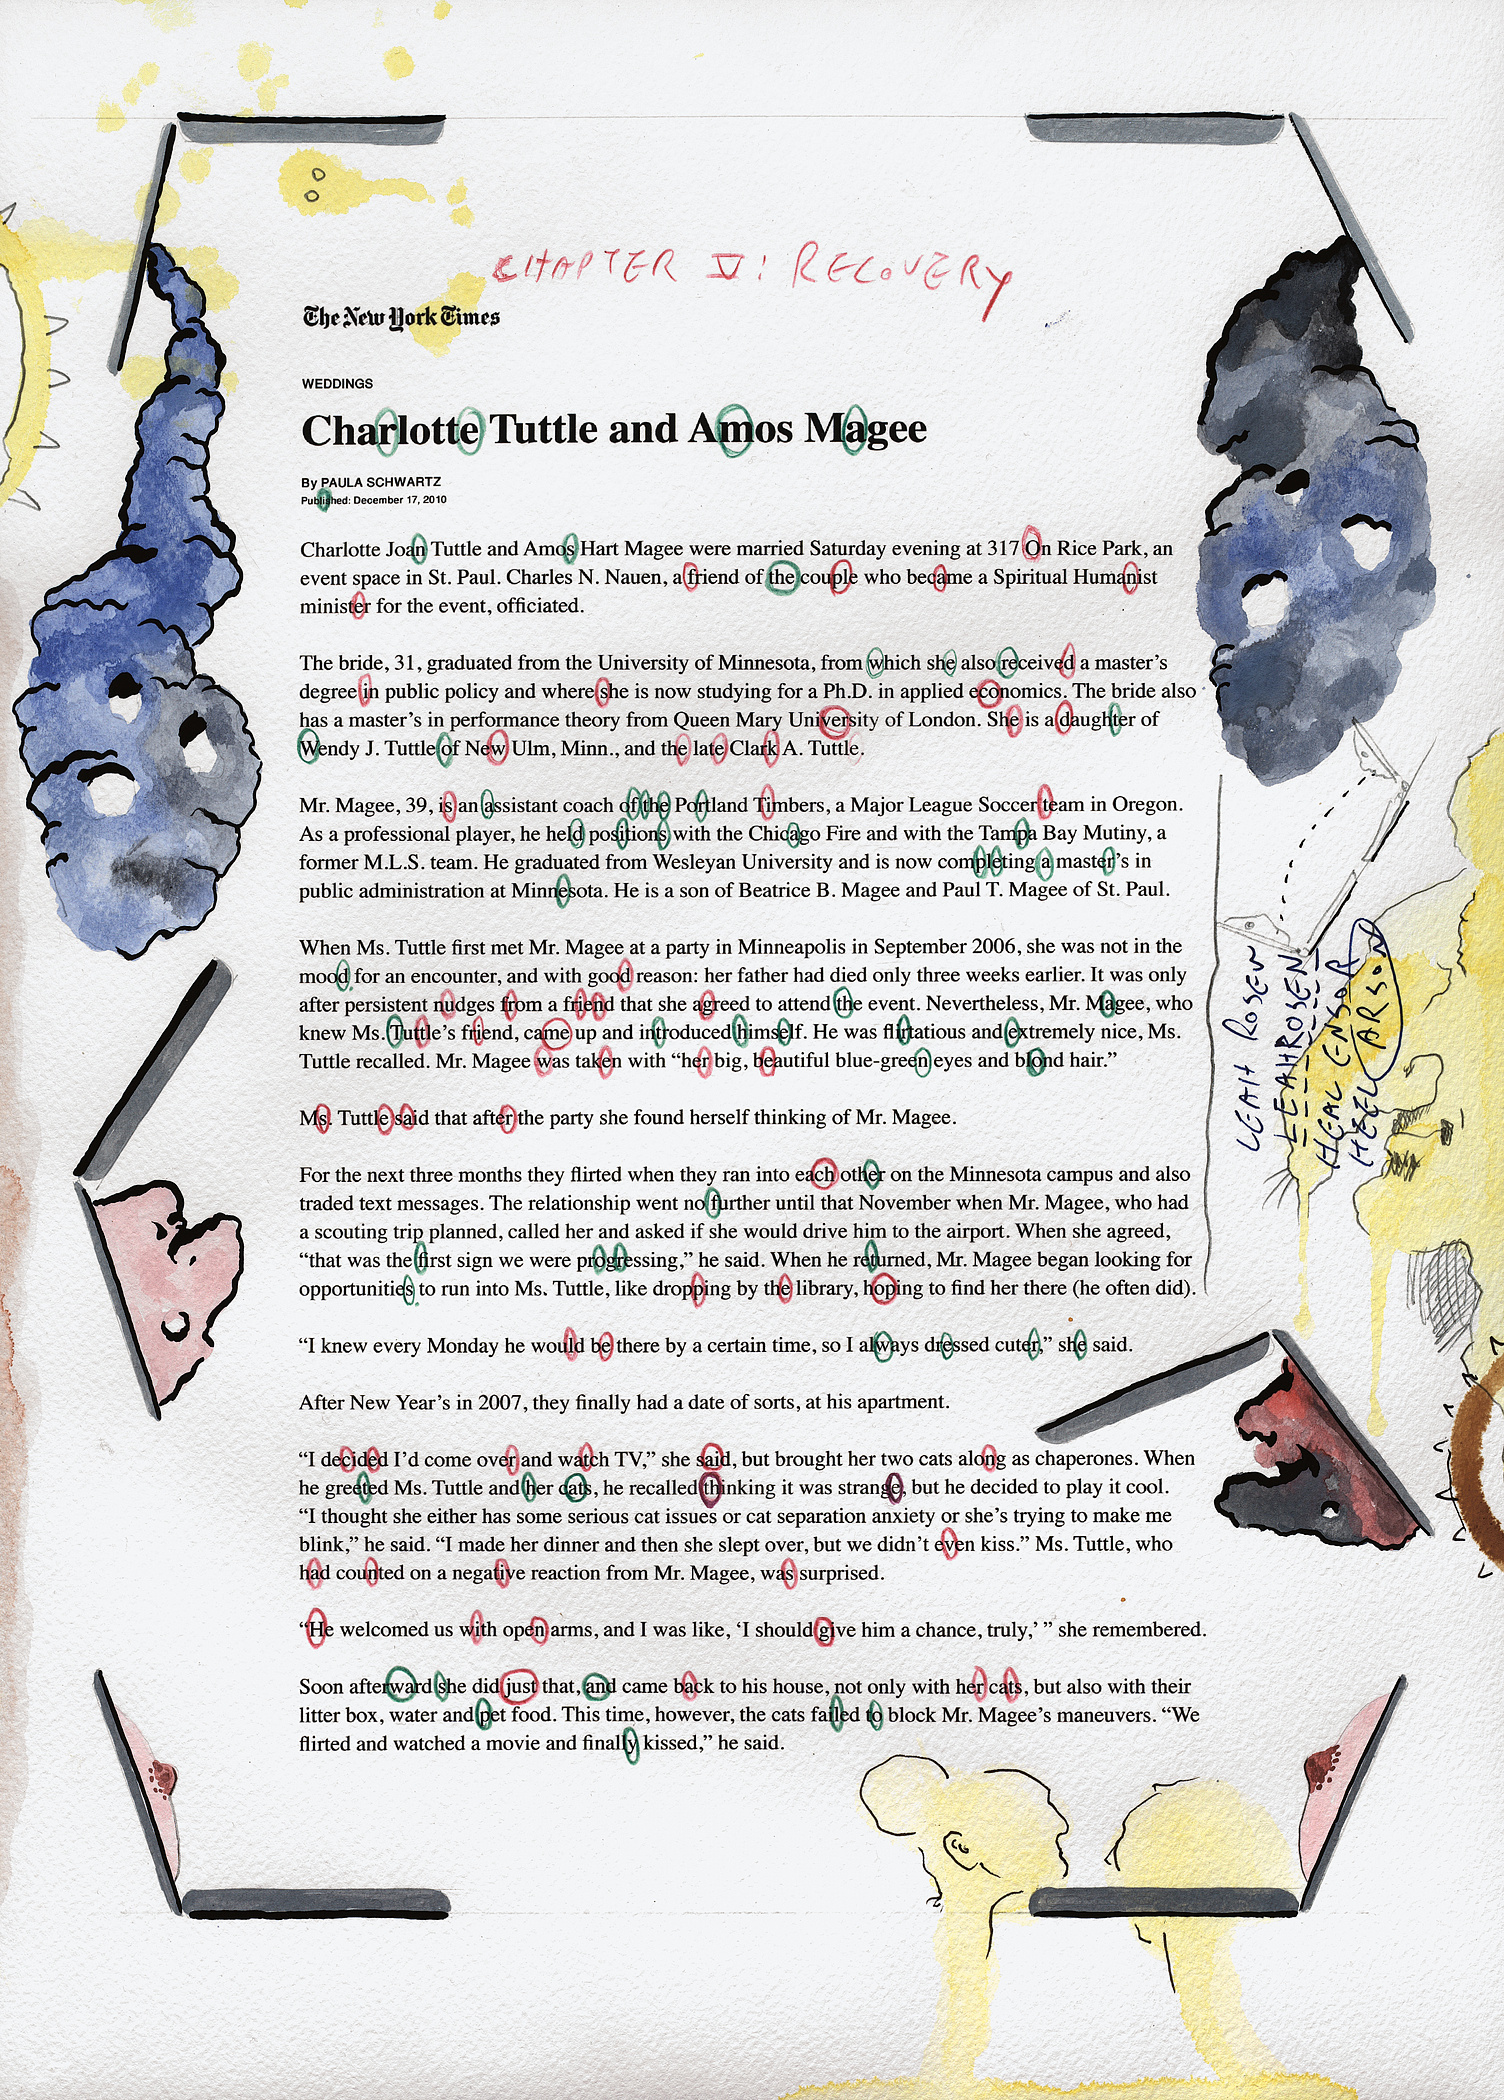 CHAPTER V: RECOVERY
The New York Times
WEDDINGS
Charlotte Tuttle and Amos Magee
By PAULA SCHWARTZ
Published: December 17, 2010
Charlotte Joan Tuttle and Amos Hart Magee were married Saturday evening at 317 On Rice Park, an
event space in St. Paul. Charles N. Nauen, a friend of the couple who became a Spiritual Humanist
minister for the event, officiated.
The bride, 31, graduated from the University of Minnesota, from which she also received a master’s
degree in public policy and where she is now studying for a Ph.D. in applied economics. The bride also
has a master’s in performance theory from Queen Mary University of London. She is a daughter of
Wendy J. Tuttle of New Ulm, Minn., and the late Clark A. Tuttle.
Mr. Magee, 39, is an assistant coach of the Portland Timbers, a Major League Soccer team in Oregon.
As a professional player, he held positions with the Chicago Fire and with the Tampa Bay Mutiny, a
former M.L.S. team. He graduated from Wesleyan University and is now completing a master’s in
public administration at Minnesota. He is a son of Beatrice B. Magee and Paul T. Magee of St. Paul.
When Ms. Tuttle first met Mr. Magee at a party in Minneapolis in September 2006, she was not in the
mood for an encounter, and with good reason: her father had died only three weeks earlier. It was only
after persistent nudges from a friend that she agreed to attend the event. Nevertheless, Mr. Magee, who
knew Ms. Tuttle’s friend, came up and introduced himself. He was flirtatious and extremely nice, Ms.
Tuttle recalled. Mr. Magee was taken with “her big, beautiful blue-green eyes and blond hair.”
Ms. Tuttle said that after the party she found herself thinking of Mr. Magee.
For the next three months they flirted when they ran into each other on the Minnesota campus and also
traded text messages. The relationship went no further until that November when Mr. Magee, who had
a scouting trip planned, called her and asked if she would drive him to the airport. When she agreed,
“that was the first sign we were progressing,” he said. When he returned, Mr. Magee began looking for
opportunities to run into Ms. Tuttle, like dropping by the library, hoping to find her there (he often did).
“I knew every Monday he would be there by a certain time, so I always dressed cuter,” she said.
After New Year’s in 2007, they finally had a date of sorts, at his apartment.
“I decided I’d come over and watch TV,” she said, but brought her two cats along as chaperones. When
he greeted Ms. Tuttle and her cats, he recalled thinking it was strange, but he decided to play it cool.
“I thought she either has some serious cat issues or cat separation anxiety or she’s trying to make me
blink,” he said. “I made her dinner and then she slept over, but we didn’t even kiss.” Ms. Tuttle, who
had counted on a negative reaction from Mr. Magee, was surprised.
“He welcomed us with open arms, and I was like, ‘I should give him a chance, truly,’ ” she remembered.
Soon afterward she did just that, and came back to his house, not only with her cats, but also with their
litter box, water and pet food. This time, however, the cats failed to block Mr. Magee’s maneuvers. “We
flirted and watched a movie and finally kissed,” he said.
LEAH ROSEN
LEAHROSEN
HEAL ENSOR
HEEL ARSON